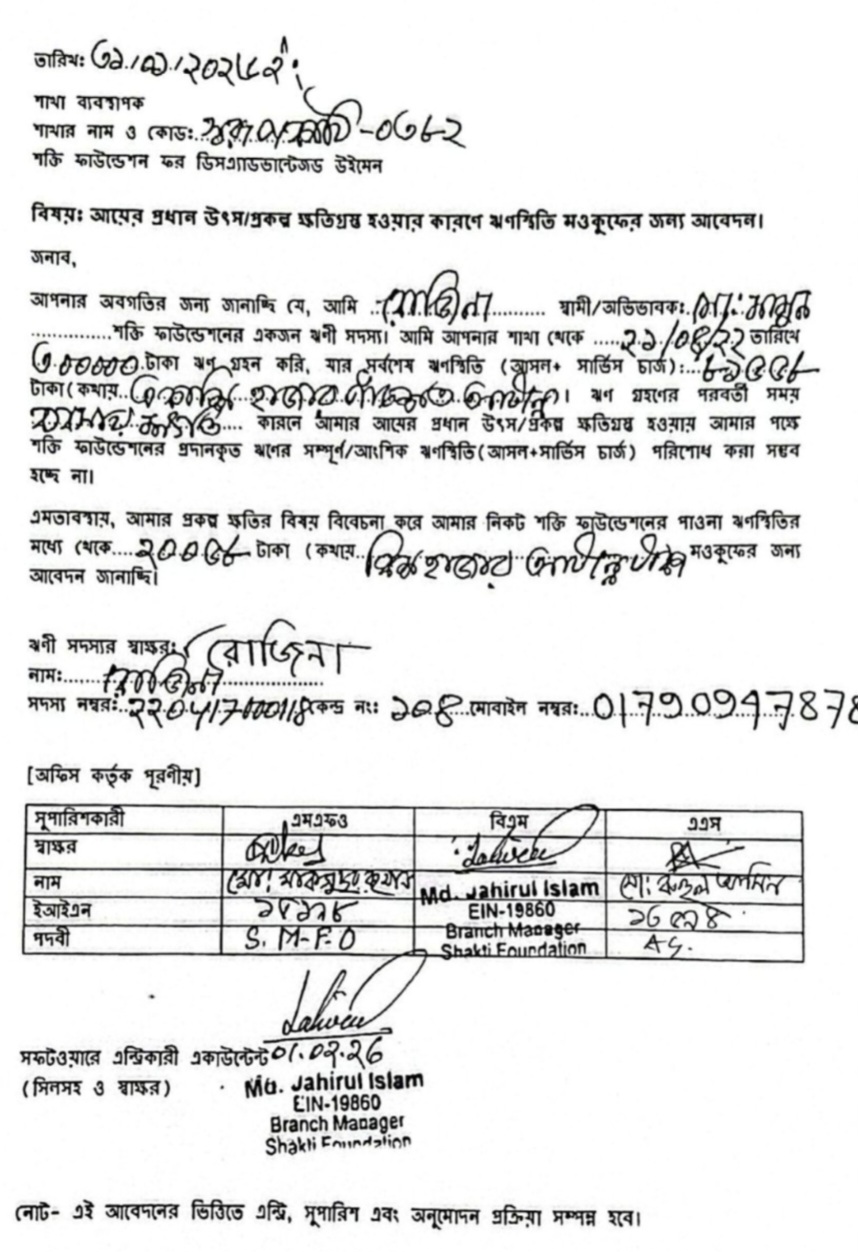 তারিখ:
শাখা ব্যবস্থাপক
শাখার নাম ও কোড: -০৩৮২
শক্তি ফাউন্ডেশন ফর ডিসএ্যাডভান্টেজড উইমেন
বিষয়: আয়ের প্রধান উৎস/প্রকল্প ক্ষতিগ্রস্ত হওয়ার কারণে ঋণস্থিতি মওকুফের জন্য আবেদন।
জনাব,
আপনার অবগতির জন্য জানাচ্ছি যে, আমি ..রোজিনা.......... স্বামী/অভিভাবক: মো: মামুন
..............শক্তি ফাউন্ডেশনের একজন ঋণী সদস্য। আমি আপনার শাখা থেকে .....২১/০৪/২২ তারিখে
৩০০০০০ টাকা ঋণ গ্রহন করি, যার সর্বশেষ ঋণস্থিতি (আসল+ সার্ভিস চার্জ):
টাকা(কথায় হাজার আটান্ন। ঋণ গ্রহণের পরবর্তী সময়
ব্যবসায় ক্ষতি.... কারনে আমার আয়ের প্রধান উৎস/প্রকল্প ক্ষতিগ্রস্ত হওয়ায় আমার পক্ষে
শক্তি ফাউন্ডেশনের প্রদানকৃত ঋণের সম্পূর্ণ/আংশিক ঋণস্থিতি(আসল+সার্ভিস চার্জ) পরিশোধ করা সম্ভব
হচ্ছে না।
এমতাবস্থায়, আমার প্রকল্প ক্ষতির বিষয় বিবেচনা করে আমার নিকট শক্তি ফাউন্ডেশনের পাওনা ঋণস্থিতির
মধ্যে থেকে....২০০৫৮ টাকা (কথায়..বিশ হাজার আটান্ন মওকুফের জন্য
আবেদন জানাচ্ছি।
ঋণী সদস্যর স্বাক্ষর: রোজিনা
নাম:......রোজিনা..................
সদস্য নম্বর:..22041700118 কেন্দ্র নং: ১০৪ মোবাইল নম্বর:..01790947878
[অফিস কর্তৃক পূরণীয়]
সুপারিশকারী এমএফও বিএম এএস
স্বাক্ষর
নাম মো: মাকসুদুর রহমান Md. Jahirul Islam মো: রুহুল আমিন
ইআইএন EIN-19860
পদবী S. M-F-O Branch Manager AS.
Shakti Foundation
সফটওয়ারে এন্ট্রিকারী একাউন্টেন্ট 01.02.26
(সিলসহ ও স্বাক্ষর) Md. Jahirul Islam
EIN-19860
Branch Manager
Shakti Foundation
নোট- এই আবেদনের ভিত্তিতে এন্ট্রি, সুপারিশ এবং অনুমোদন প্রক্রিয়া সম্পন্ন হবে।